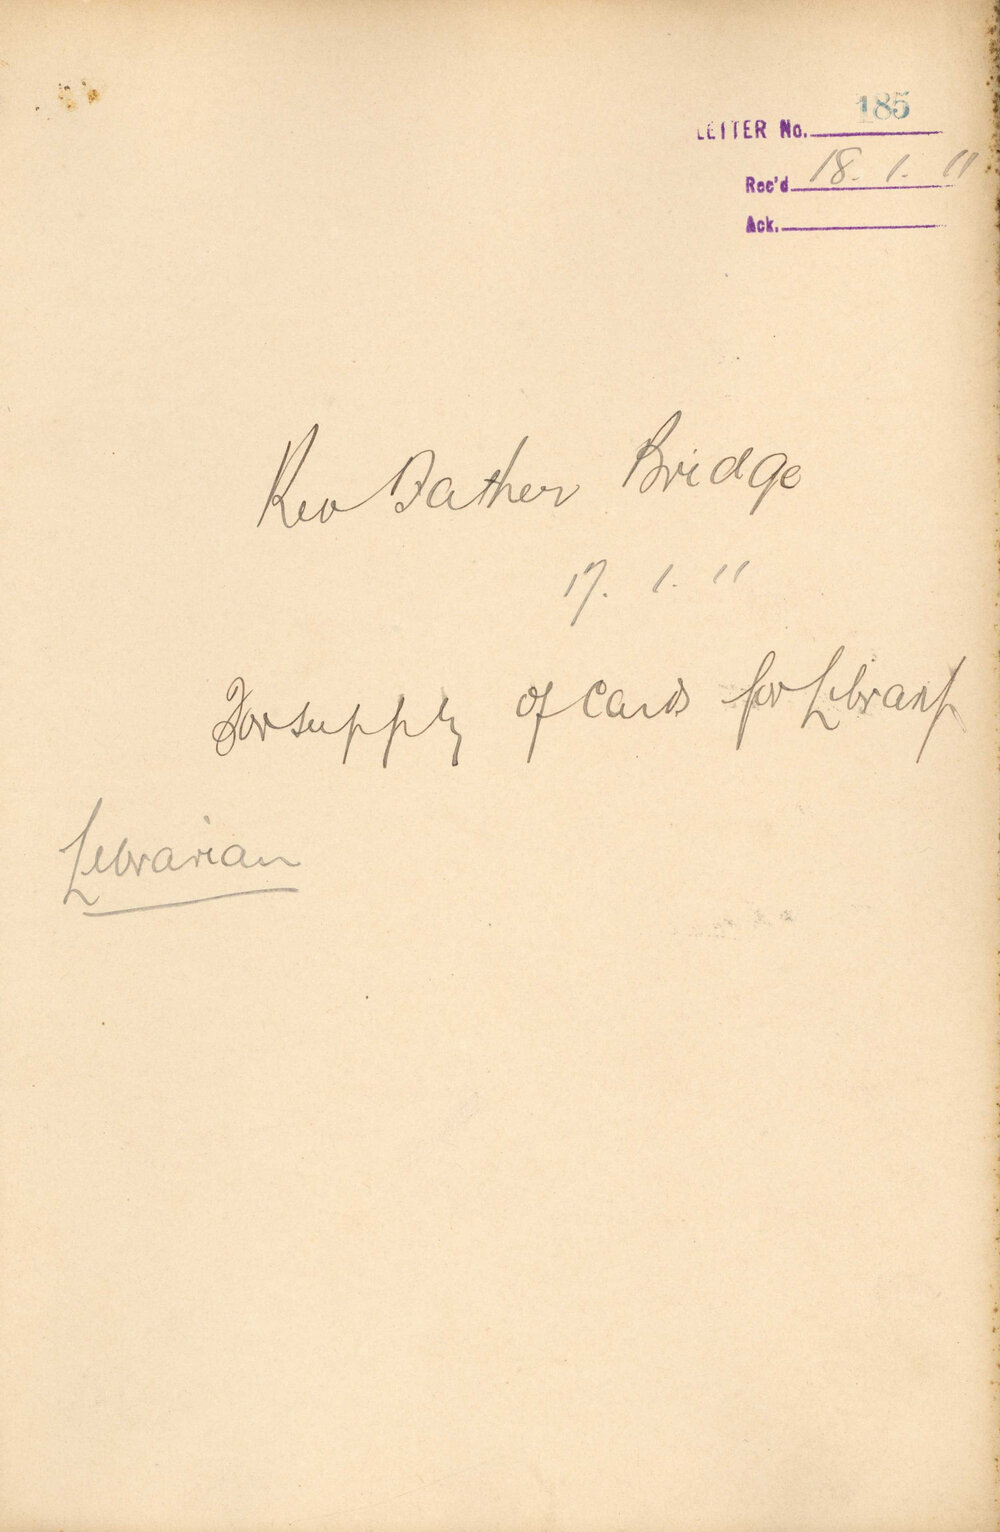 LETTER No. 185
Rec'd 18. 1. 11
Ack.
Rev Father Bridge
17. 1. 11
For supply of cards for Library
Librarian